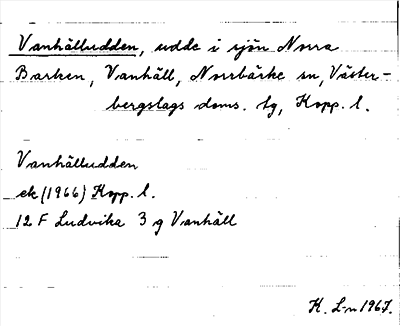 Vanhälludden, udde i sjön Norra
Barken, Vanhäll, Norrbärke sn, Väster-
bergslags doms. tg, Kopp. l.
Vanhälludden
ek (1966) Kopp. l.
12 F Ludvika 3 g Vanhäll
K. L-n 1967.